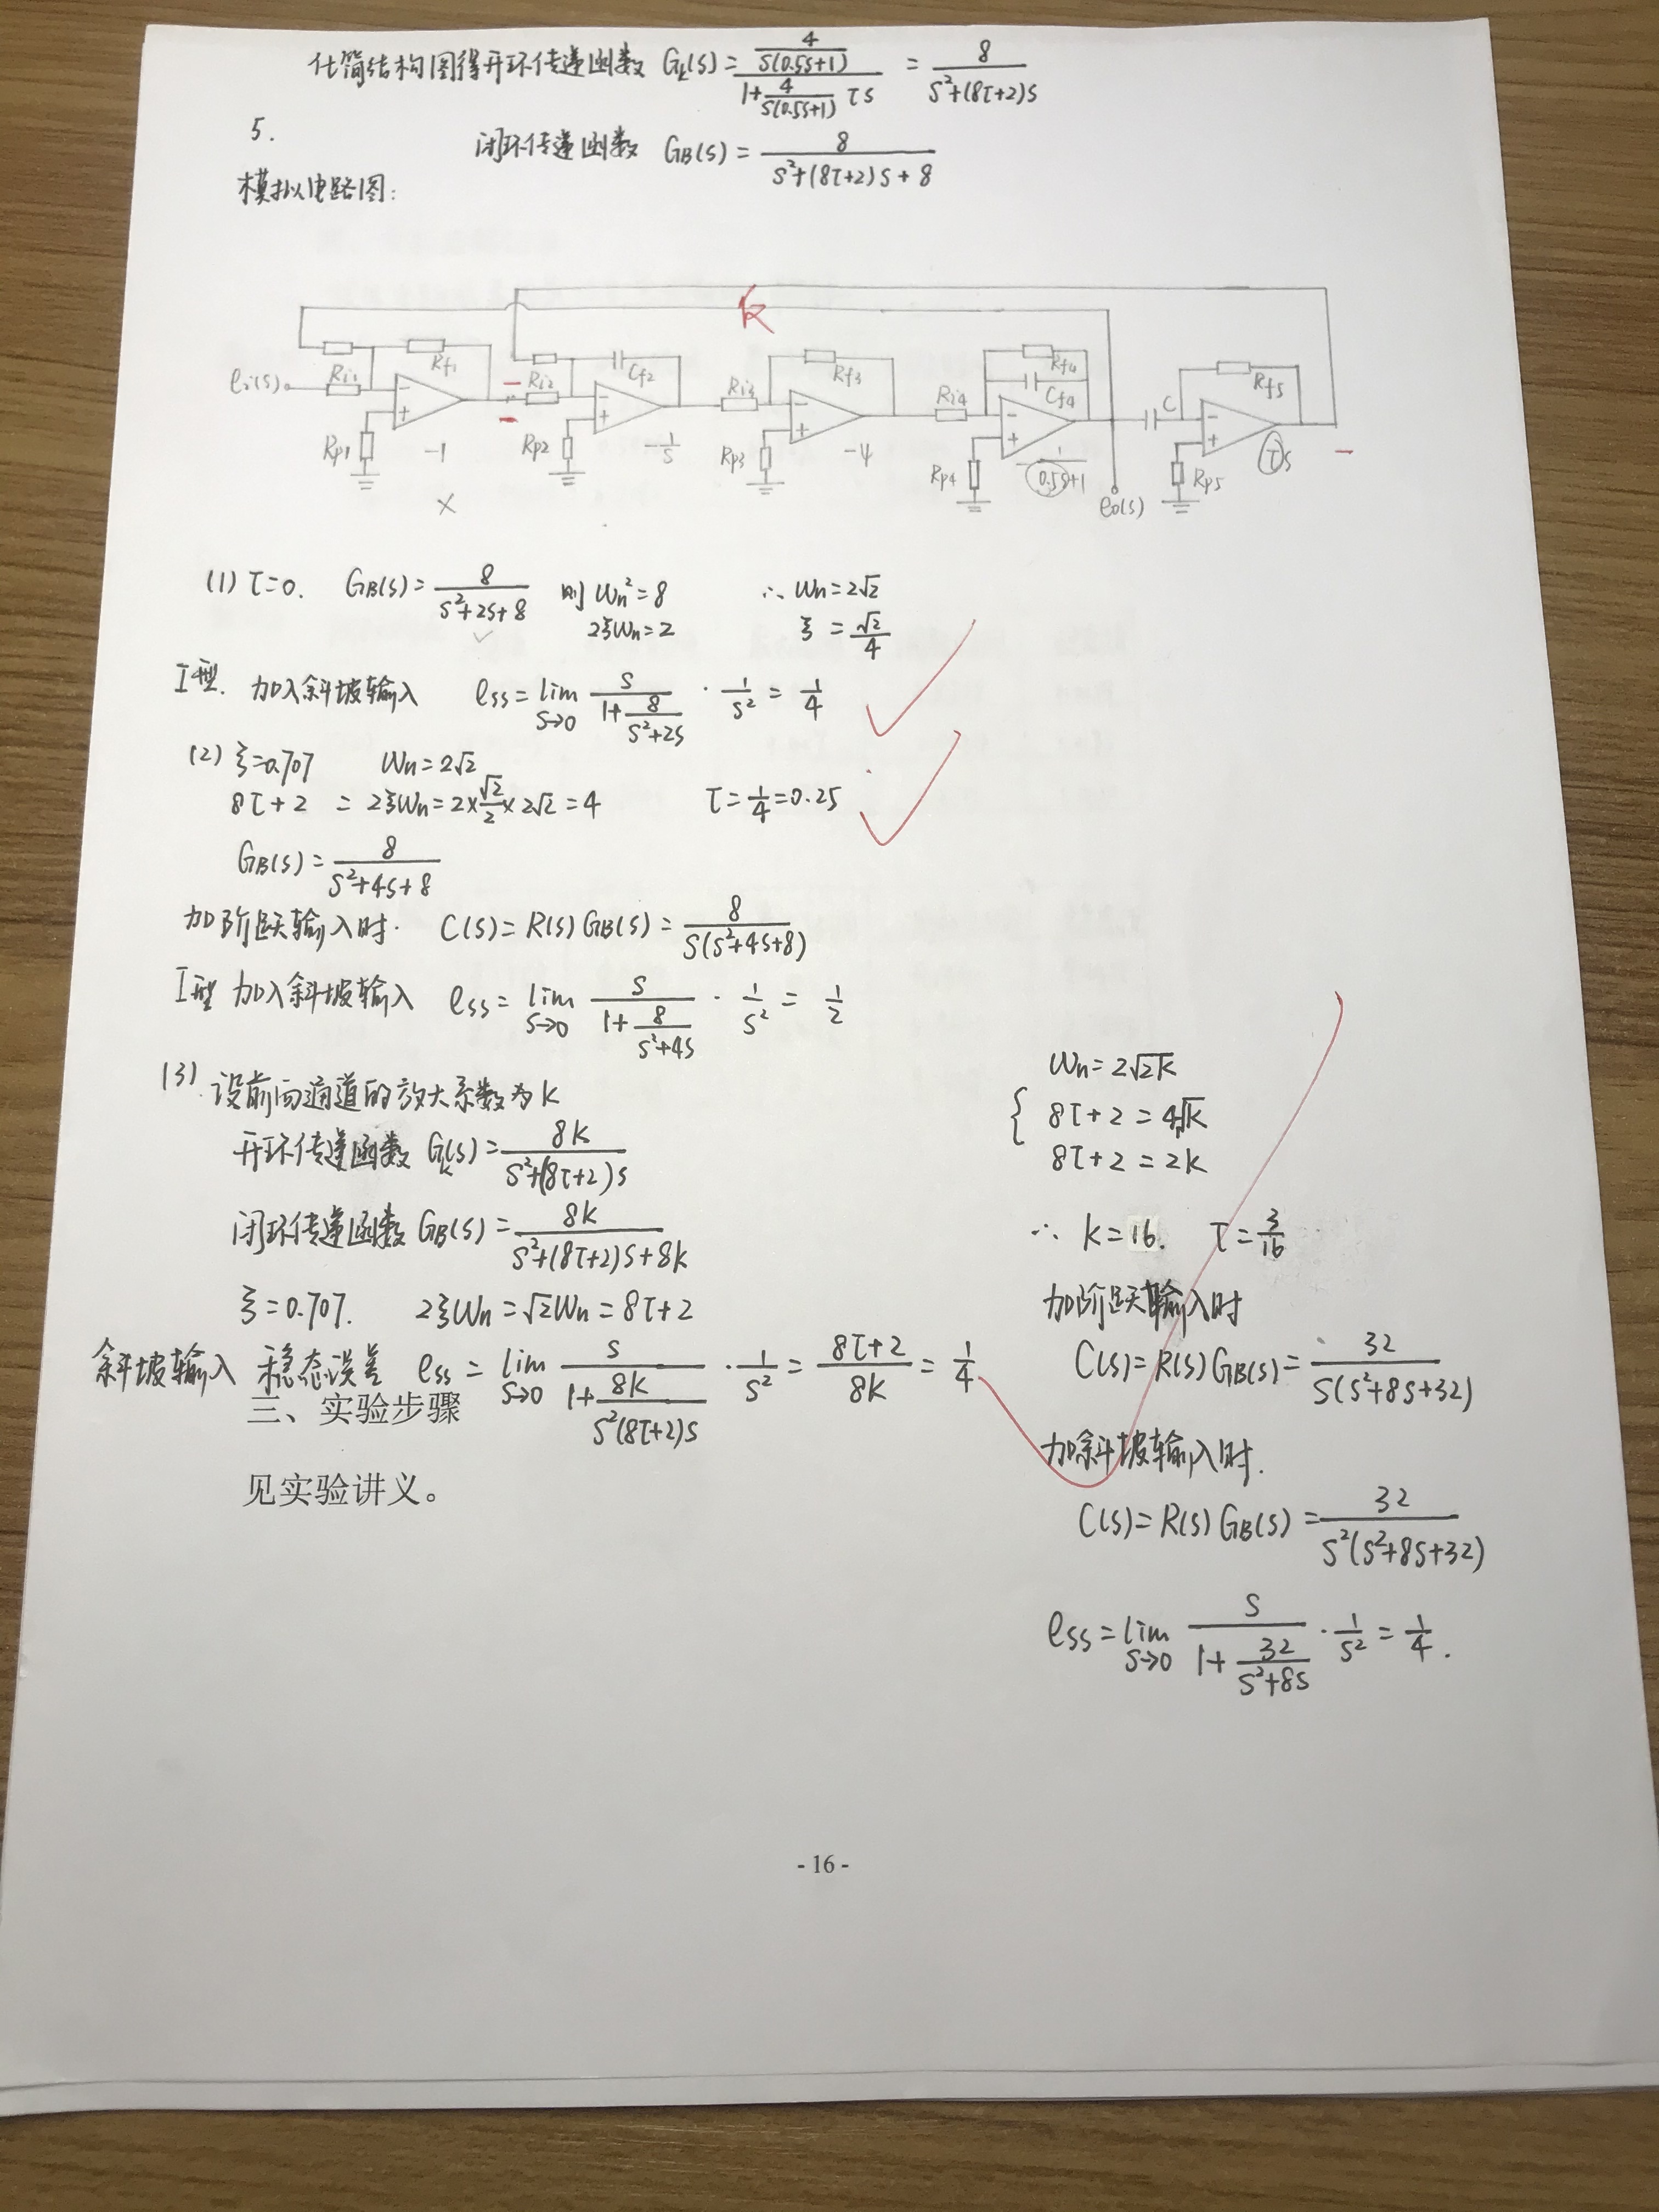 化简结构图得开环传递函数 Gk(s) = \frac{\frac{4}{s(0.5s+1)}}{1+\frac{4}{s(0.5s+1)}τs} = \frac{8}{s²+(8τ+2)s}
5.
闭环传递函数 GB(s) = \frac{8}{s²+(8τ+2)s+8}
模拟电路图:
反
ei(s) Ri1 Rf1 Ri2 Cf2 Ri3 Rf3 Ri4 Rf4 Cf4 C Rf5
Rp1 -1 Rp2 -\frac{1}{s} Rp3 -4 Rp4 -\frac{1}{0.5s+1} eo(s) Rp5 τs
(1) τ=0. GB(s) = \frac{8}{s²+2s+8} 则 Wn²=8 ∴ Wn=2√2
2ξWn=2 ξ=\frac{√2}{4}
I型. 加入斜坡输入 ess = lim_{s→0} \frac{s}{1+\frac{8}{s²+2s}} · \frac{1}{s²} = \frac{1}{4}
(2) ξ=0.707 Wn=2√2
8τ+2 = 2ξWn = 2×\frac{√2}{2}×2√2 = 4 τ=\frac{1}{4}=0.25
GB(s) = \frac{8}{s²+4s+8}
加阶跃输入时. C(s)=R(s)GB(s) = \frac{8}{s(s²+4s+8)}
I型 加入斜坡输入 ess = lim_{s→0} \frac{s}{1+\frac{8}{s²+4s}} · \frac{1}{s²} = \frac{1}{2}
(3). 设前向通道的放大系数为K
开环传递函数 Gk(s) = \frac{8K}{s²+(8τ+2)s}
闭环传递函数 GB(s) = \frac{8K}{s²+(8τ+2)s+8K}
ξ=0.707. 2ξWn=√2Wn=8τ+2
斜坡输入 稳态误差 ess = lim_{s→0} \frac{s}{1+\frac{8K}{s²(8τ+2)s}} · \frac{1}{s²} = \frac{8τ+2}{8K} = \frac{1}{4}
三、实验步骤
见实验讲义。
Wn=2√2K
{ 8τ+2=4√K
8τ+2=2K
∴ K=16. τ=\frac{3}{16}
加阶跃输入时
C(s)=R(s)GB(s) = \frac{32}{s(s²+8s+32)}
加斜坡输入时.
C(s)=R(s)GB(s) = \frac{32}{s²(s²+8s+32)}
ess = lim_{s→0} \frac{s}{1+\frac{32}{s²+8s}} · \frac{1}{s²} = \frac{1}{4}.
- 16 -